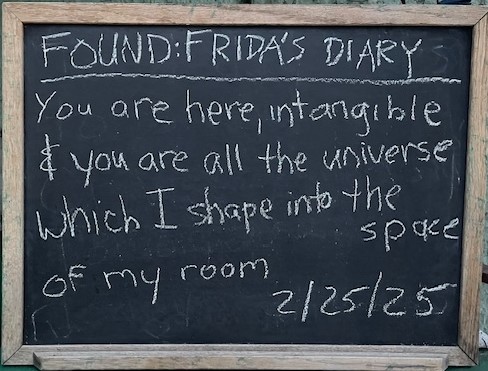 FOUND: FRIDA'S DIARY
You are here, intangible
& you are all the universe
which I shape into the
space
of my room
2/25/25